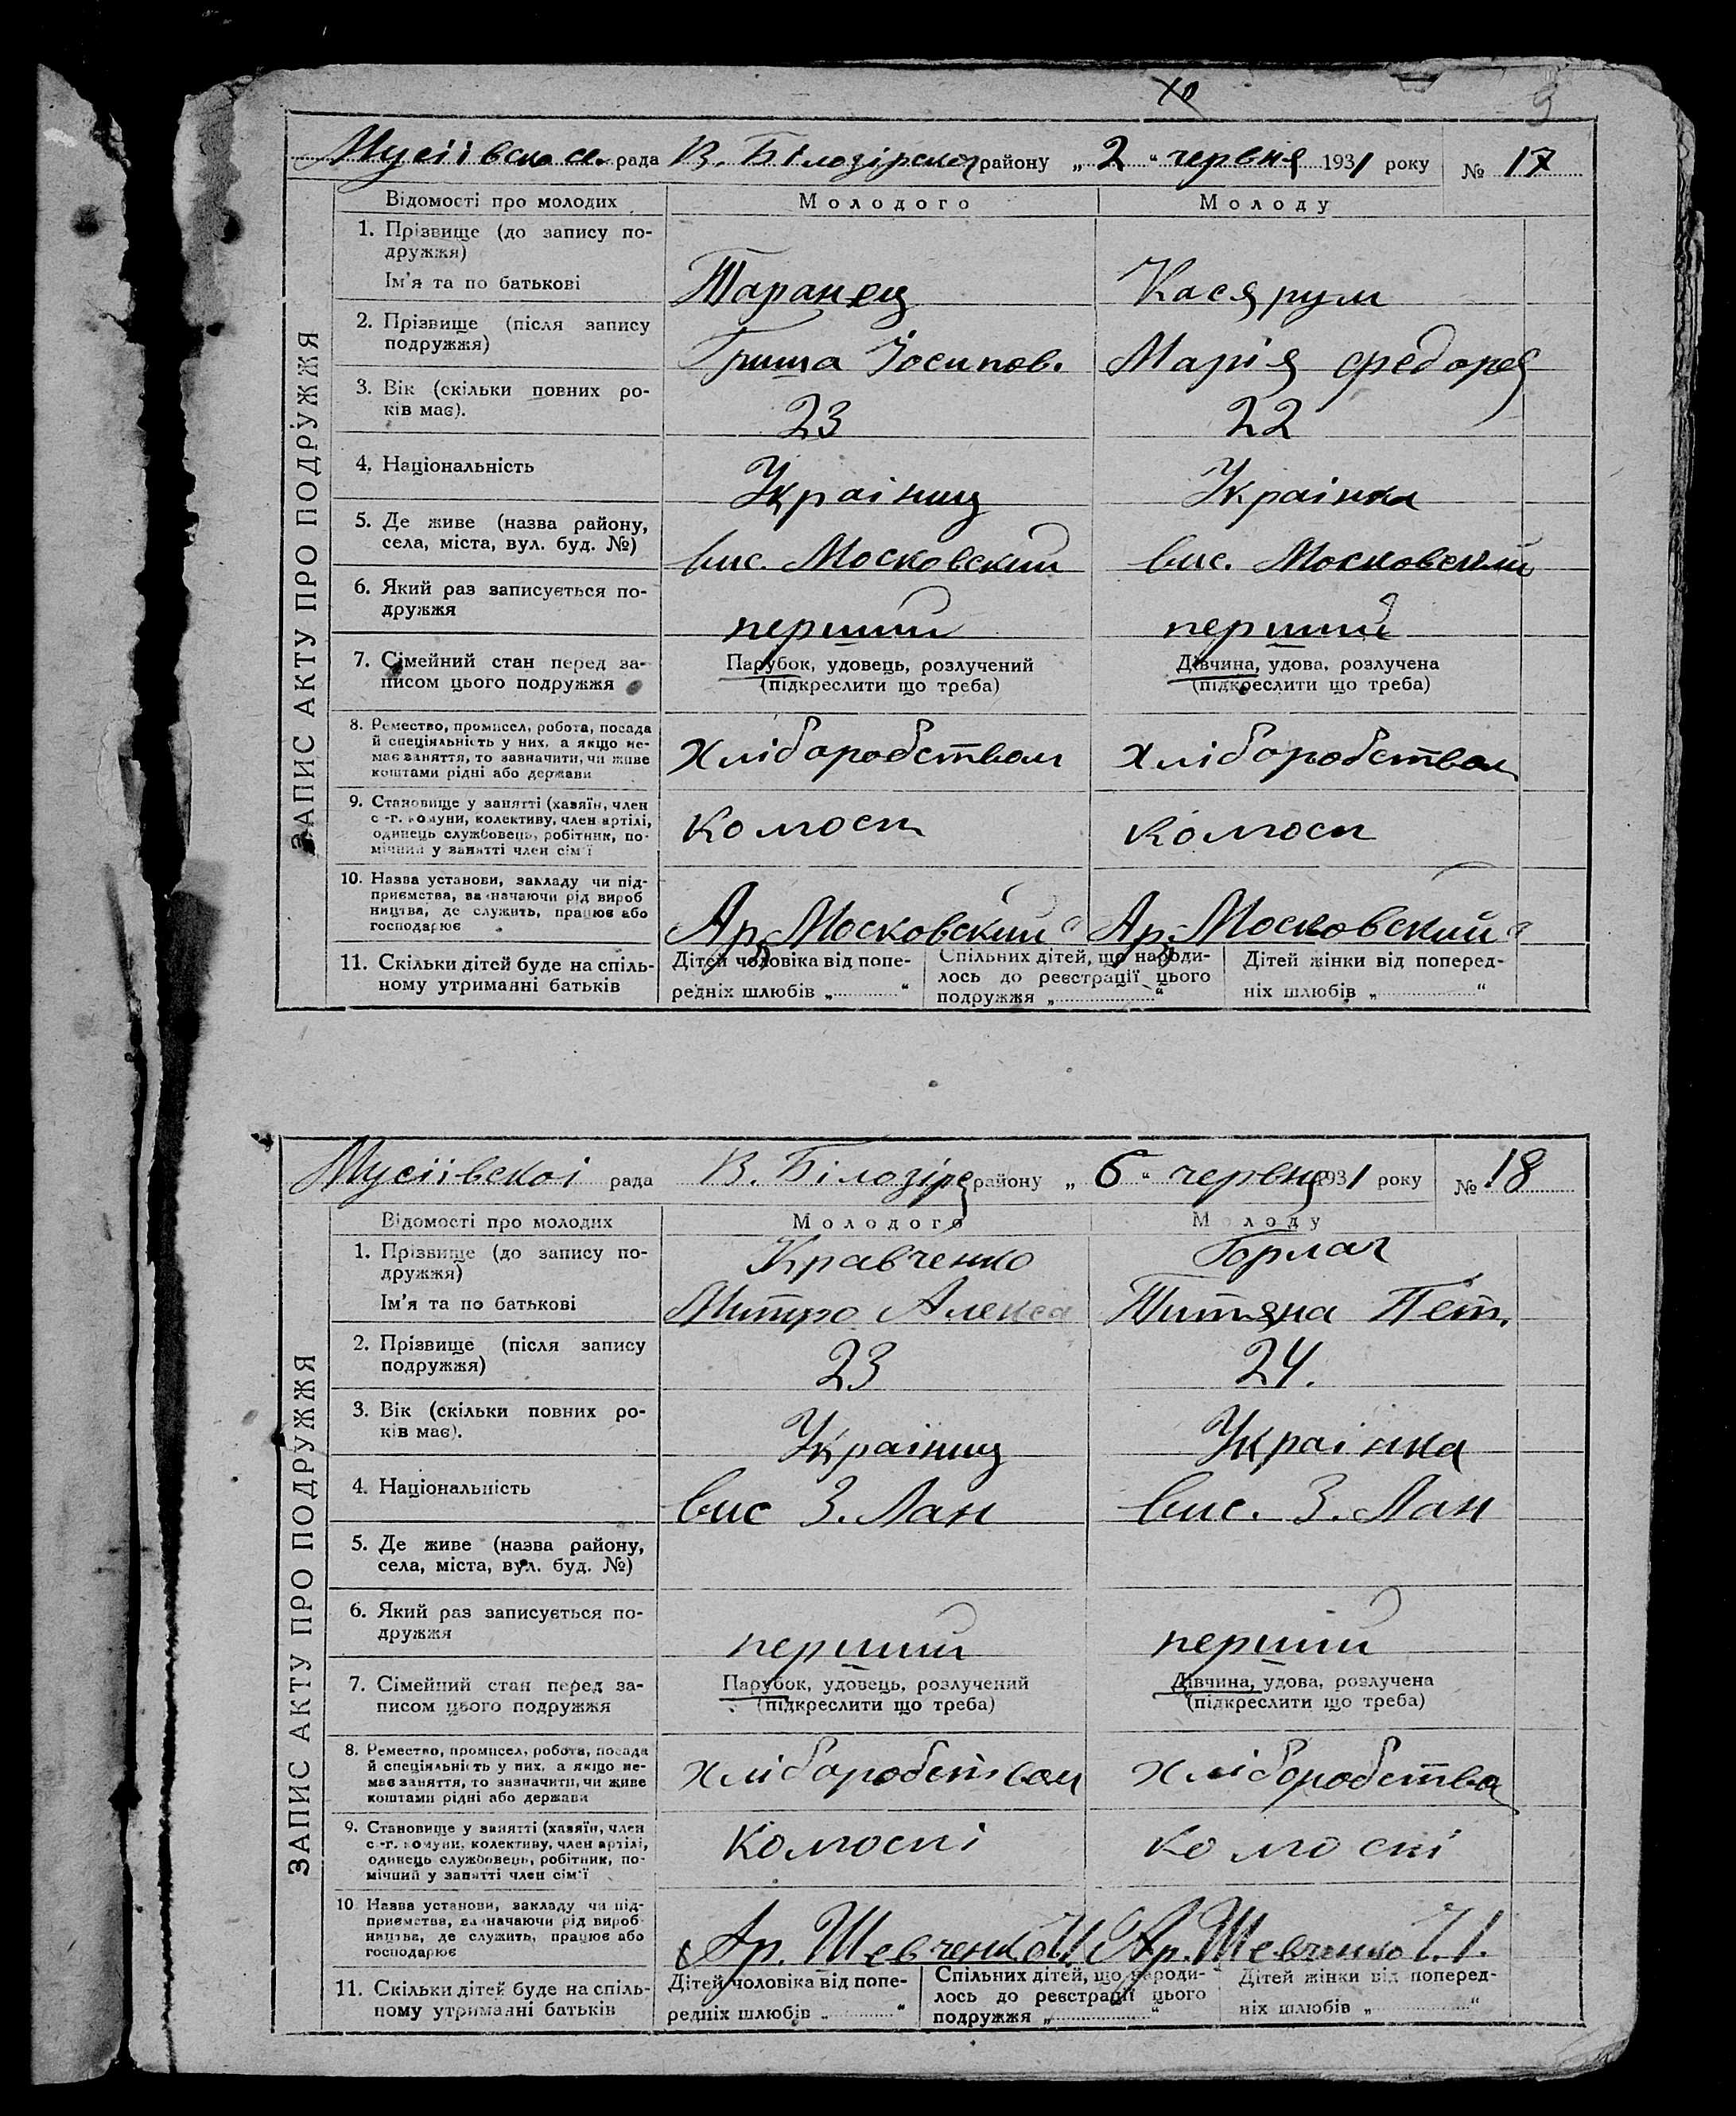 9
Мусіівско се. рада В. Білозірског району „ 2 “ червня 1931 року № 17
Відомості про молодих Молодого Молоду
ЗАПИС АКТУ ПРО ПОДРУЖЖЯ
1. Прізвище (до запису по-
дружжя)
Ім'я та по батькові Таранец Касярум
2. Прізвище (після запису
подружжя) Гриша Йосипов. Марія Федоре
3. Вік (скільки повних ро-
ків має). 23 22
4. Національність Украінец Украінка
5. Де живе (назва району,
села, міста, вул. буд. №) вис. Московский вис. Московский
6. Який раз записується по-
дружжя перший перший
7. Сімейний стан перед за-
писом цього подружжя
Парубок, удовець, розлучений
(підкреслити що треба)
Дівчина, удова, розлучена
(підкреслити що треба)
8. Ремество, промисел, робота, посада
й спеціяльність у них, а якщо не-
має заняття, то зазначити, чи живе
коштами рідні або держави
хліборобством хліборобством
9. Становище у занятті (хазяїн, член
с.-г. комуни, колективу, член артілі,
одинець службовець, робітник, по-
мічний у занятті член сім'ї
10. Назва установи, закладу чи під-
приємства, зазначаючи рід вироб
ництва, де служить, працює або
господарює
Ар. Московский Ар. Московский
11. Скільки дітей буде на спіль-
ному утриманні батьків
Дітей чоловіка від попе-
редніх шлюбів „ “
Спільних дітей, що народи-
лось до реєстрації цього
подружжя „ “
Дітей жінки від поперед-
ніх шлюбів „ “
Мусіівскоі рада В. Білозірс району „ 6 “ червня 1931 року № 18
Відомості про молодих Молодого Молоду
ЗАПИС АКТУ ПРО ПОДРУЖЖЯ
1. Прізвище (до запису по-
дружжя) Кравченко Горлач
Ім'я та по батькові Митро Алекса Титяна Пет.
2. Прізвище (після запису
подружжя) 23 24.
3. Вік (скільки повних ро-
ків має). Украінец Украінка
4. Національність вис З. Лан вис. З. Лан
5. Де живе (назва району,
села, міста, вул. буд. №)
6. Який раз записується по-
дружжя перший перший
7. Сімейний стан перед за-
писом цього подружжя
Парубок, удовець, розлучений
(підкреслити що треба)
Дівчина, удова, розлучена
(підкреслити що треба)
8. Ремество, промисел, робота, посада
й спеціяльність у них, а якщо не-
має заняття, то зазначити, чи живе
коштами рідні або держави
хліборобством хліборобства
9. Становище у занятті (хазяїн, член
с.-г. комуни, колективу, член артілі,
одинець службовець, робітник, по-
мічний у занятті член сім'ї
10. Назва установи, закладу чи під-
приємства, зазначаючи рід вироб-
ництва, де служить, працює або
господарює
Ар. Шевченко Ар. Шевченко
11. Скільки дітей буде на спіль-
ному утриманні батьків
Дітей чоловіка від попе-
редніх шлюбів „ “
Спільних дітей, що народи-
лось до реєстрації цього
подружжя „ “
Дітей жінки від поперед-
ніх шлюбів „ “